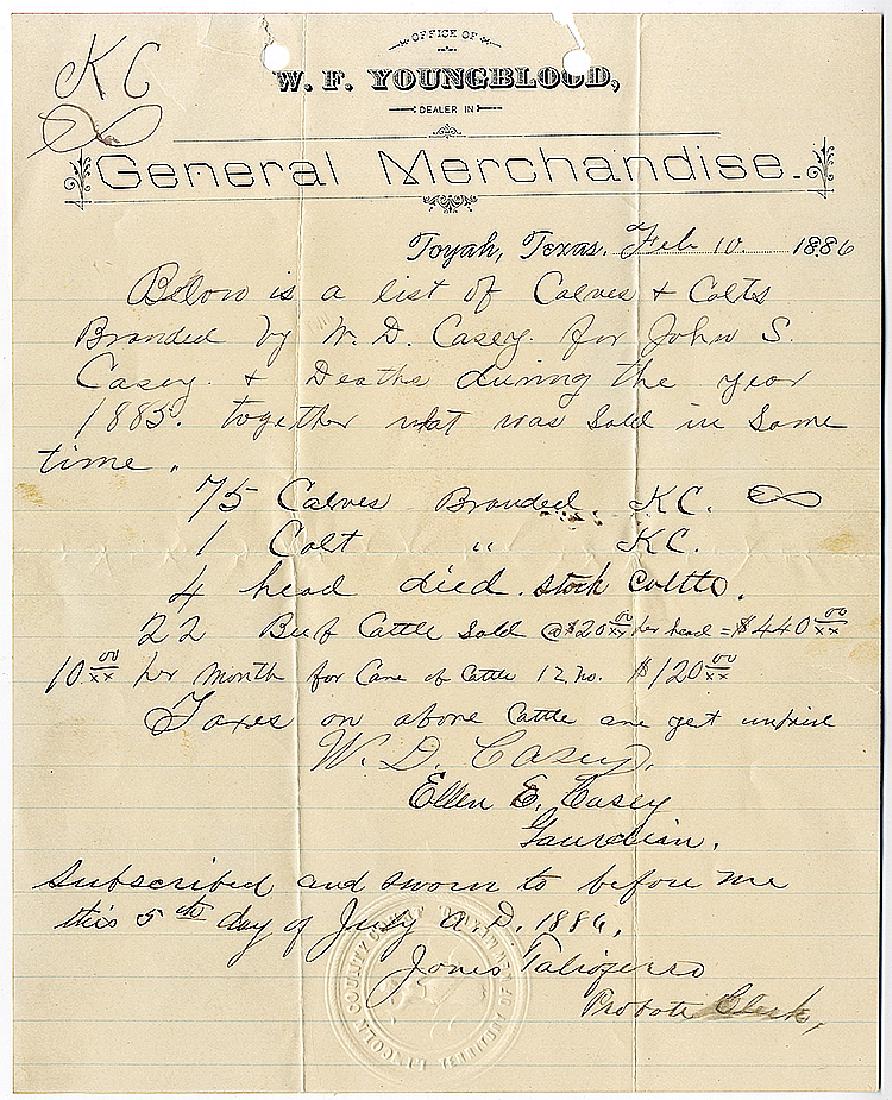 K C
OFFICE OF
W. F. YOUNGBLOOD,
DEALER IN
General Merchandise.
Toyah, Texas. Feb 10. 1886
Below is a list of Calves + Colts
Branded by W. D. Casey. for John S.
Casey. + Deaths during the year
1885. together what was Sold in Same
time.
75 Calves Branded. KC. ∞
1 Colt " KC.
4 head died. stock Cattle.
22 Beef Cattle Sold @ $20 00/xx per head = $440 00/xx
10 00/xx per Month for Care of Cattle 12 mo. $120 00/xx
Taxes on above Cattle are yet unpaid
W. D. Casey.
Ellen E. Casey
Gaurdian.
Subscribed and sworn to before me
this 5th day of July A.D. 1886.
Jones Taliaferro
Probate Clerk,
LINCOLN COUNTY TERRITORY OF NEW MEXICO